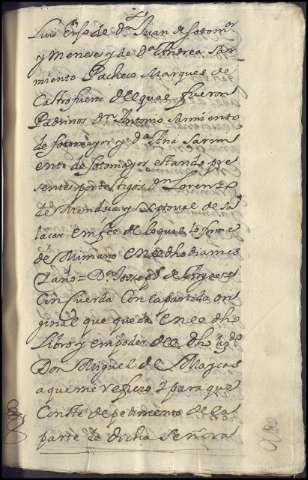 Luis Enrs de dn Juan de sotomor
y Meneses y de da Andrea Sar
miento Pacheco Marques de
Castrofuerte del qual fueron
Padrinos Dn Antonio Sarmiento
de sotomayor y da Ana Sarmi
ento de sotomayor estando pre
sentes por testigos Dn Lorenzo
de Mendoza y Cristoval de Sa
lacar en fee de lo qual lo firme
de mi mano en el dho dia mes
y año = Dn Joseph de
Con cuerda Con la partida ori
ginal que queda en el dho
Libro y en poder del dho
Don Miguel de
a que me refiero y para que
Conste de pedimento de la
parte de dicha señora